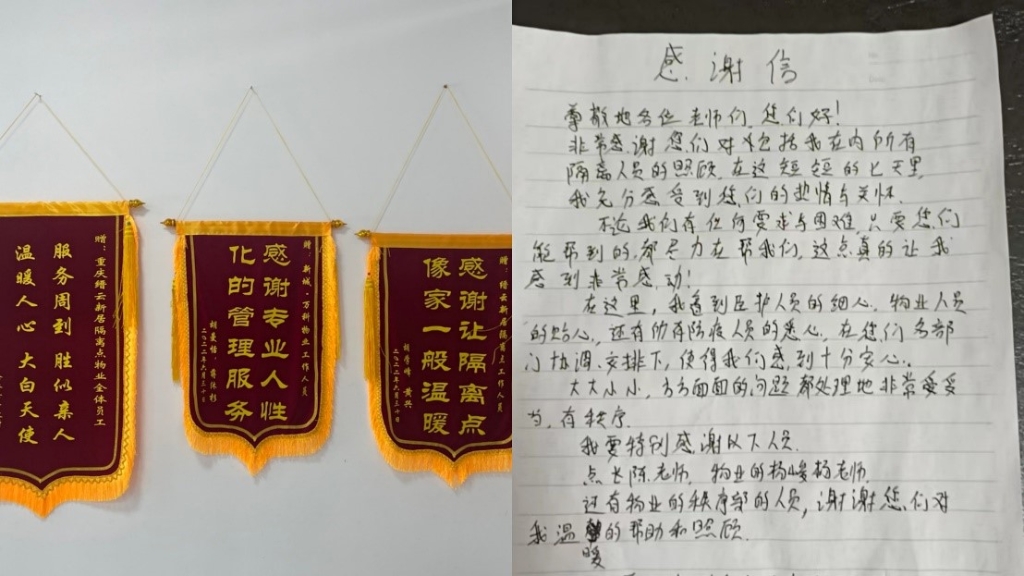 赠：重庆缙云新居隔离点物业全体员工
服务周到 胜似亲人
温暖人心 大白天使
赠：新城、万科物业工作人员
感谢专业人性
化的管理服务
二〇二二年六月三十日
赠：缙云新居隔离点工作人员
感谢让隔离点
像家一般温暖
二〇二二年六月三十日
感谢信
尊敬地各位老师们，您们好！
非常感谢您们对包括我在内所有
隔离人员的照顾，在这短短的七天里，
我充分感受到您们的热情与关怀。
不论我们有任何要求与困难，只要您们
能帮到的，都尽力在帮我们，这点真的让我
感到非常感动！
在这里，我看到医护人员的细心，物业人员
的贴心，还有所有防疫人员的悉心，在您们各部
门协调、安排下，使得我们感到十分安心。
大大小小，方方面面的问题都处理地非常妥妥
当，有秩序。
我要特别感谢以下人员
点长陈老师，物业的杨峻杨老师，
还有物业的秩序部的人员，谢谢您们对
我温暖的帮助和照顾